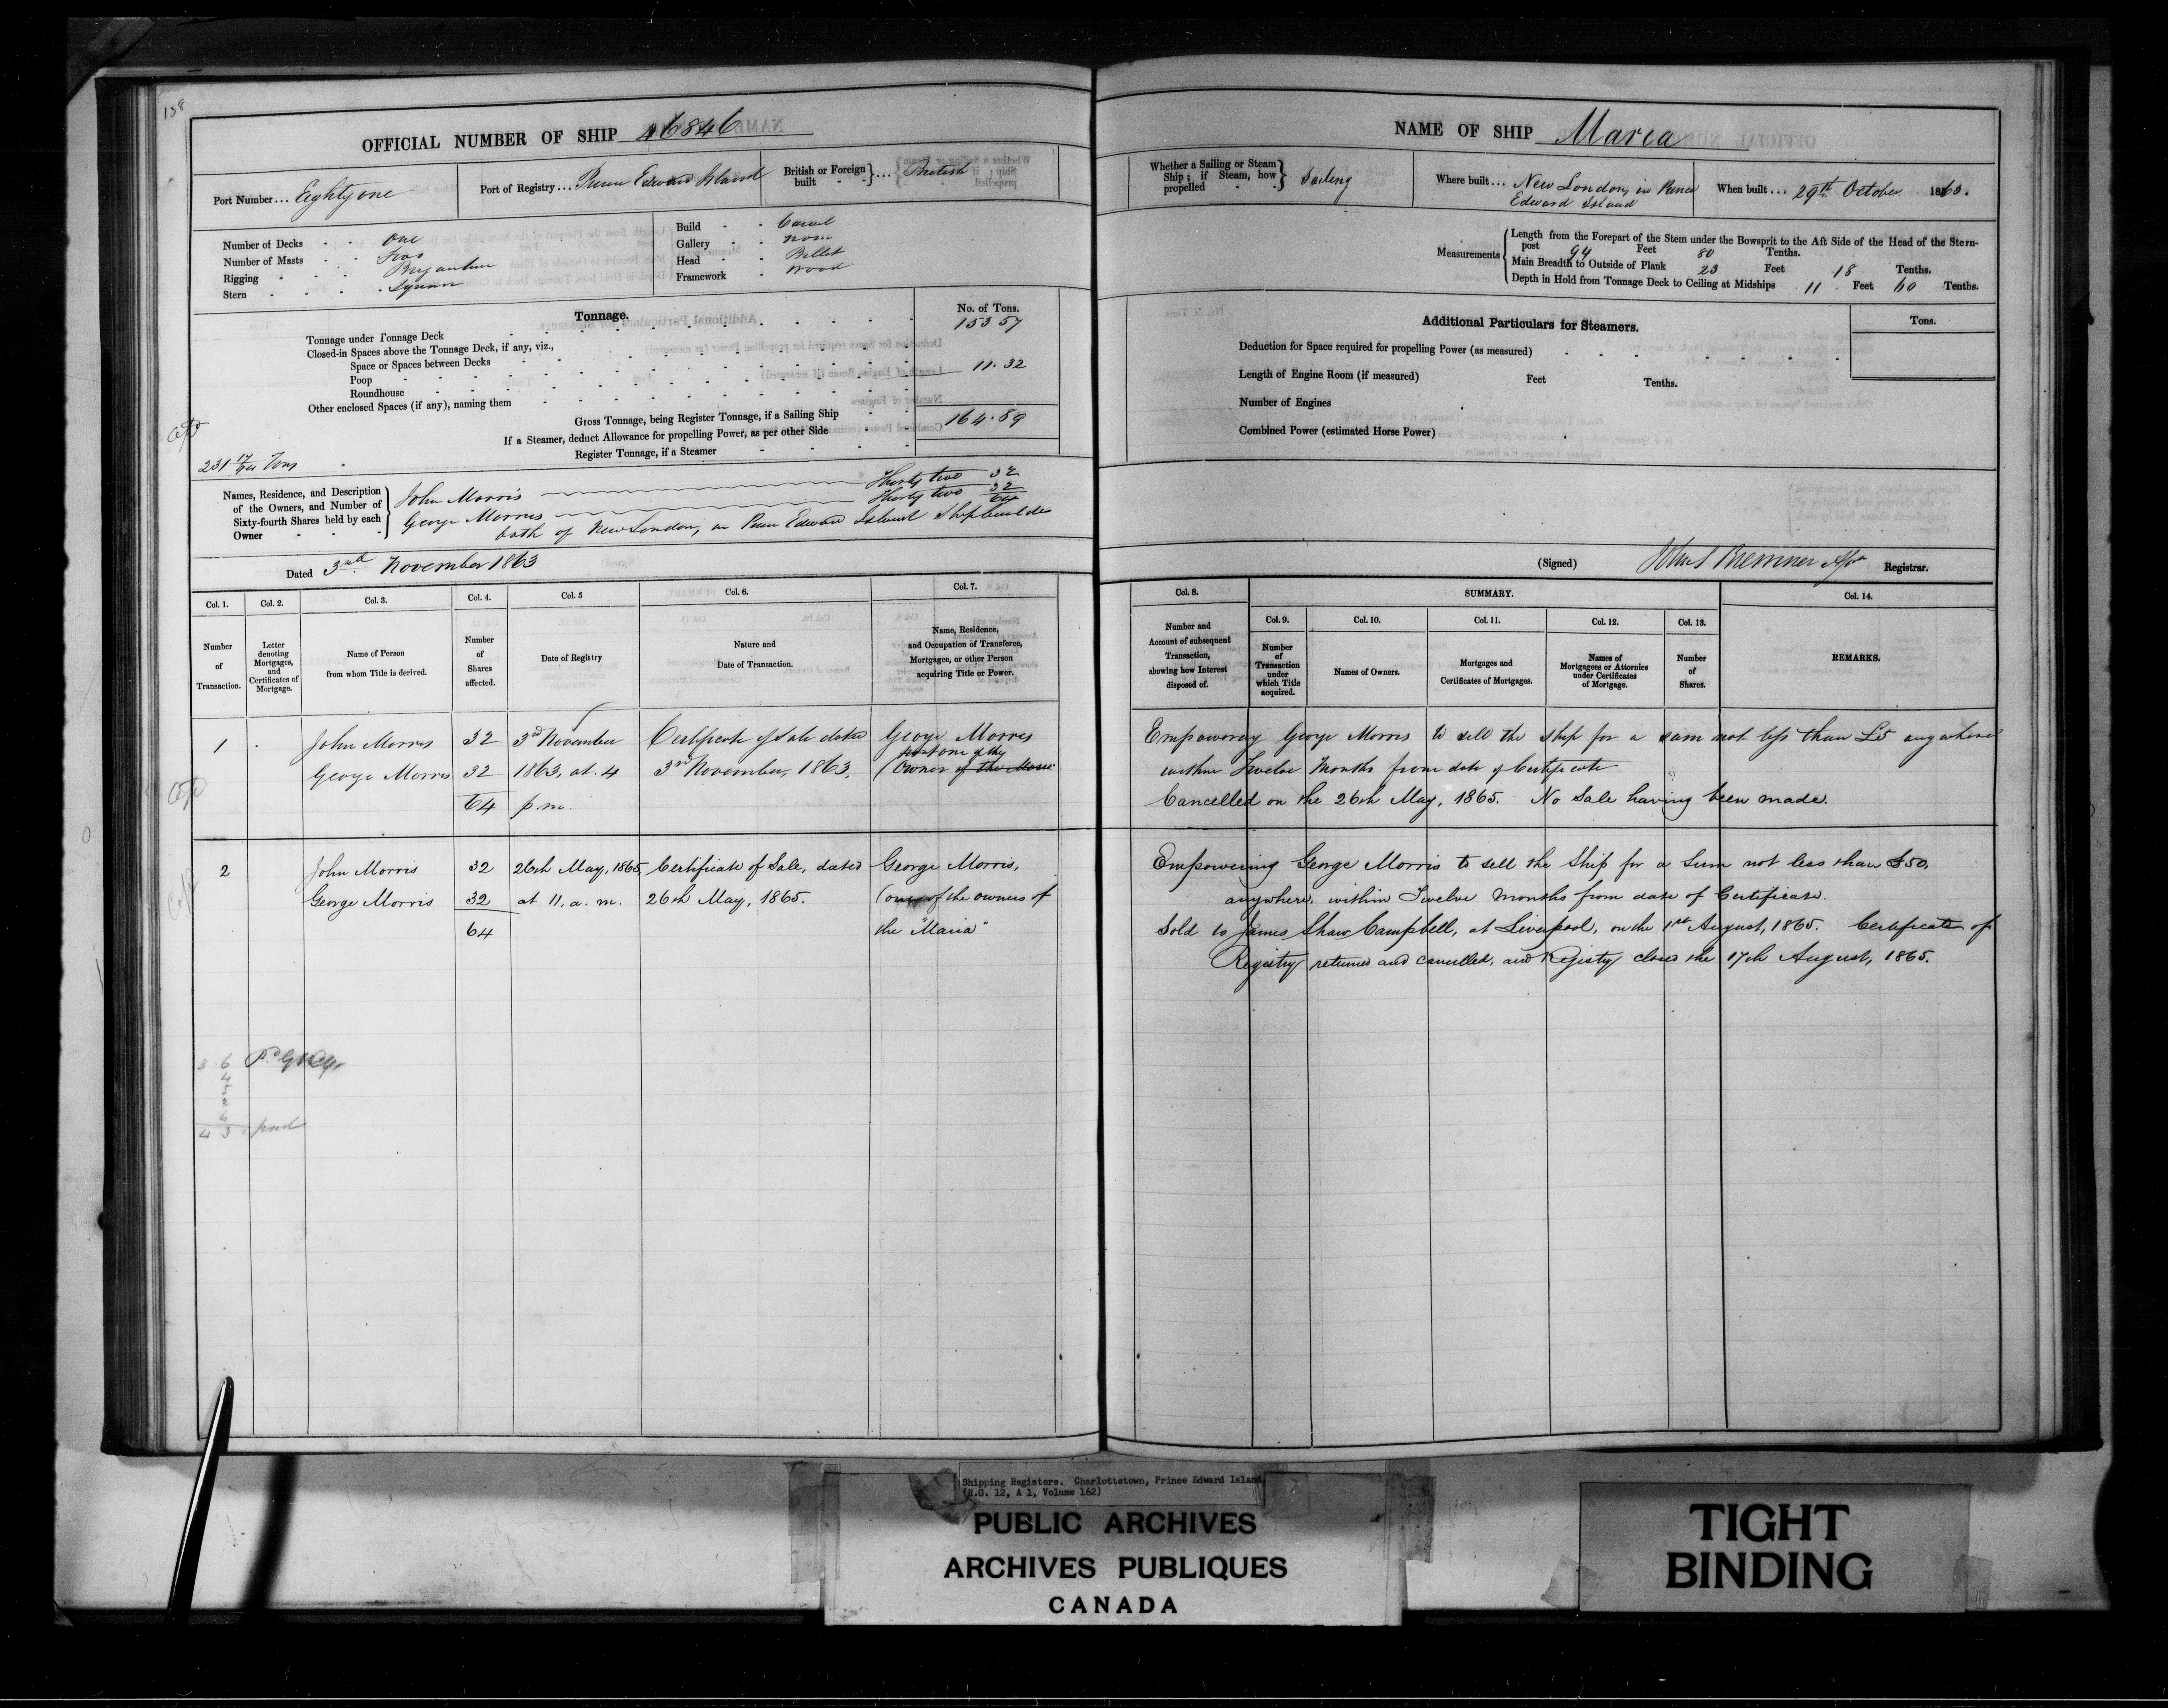 138
OFFICIAL NUMBER OF SHIP 46846
Port Number ... Eighty one
Port of Registry ... Prince Edward Island
British or Foreign built - - } ... British
Number of Decks - - One
Number of Masts - - Two
Rigging - - - Brigantine
Stern - - - - Square
Build - - Carvel
Gallery - - none
Head - - Billet
Framework - wood
Tonnage.
No. of Tons.
Tonnage under Tonnage Deck 153 57
Closed-in Spaces above the Tonnage Deck, if any, viz.,
Space or Spaces between Decks
Poop
11.32
Roundhouse
Other enclosed Spaces (if any), naming them
Gross Tonnage, being Register Tonnage, if a Sailing Ship 164.89
If a Steamer, deduct Allowance for propelling Power, as per other Side
Register Tonnage, if a Steamer
231 17/64 Tons
Names, Residence, and Description of the Owners, and Number of Sixty-fourth Shares held by each Owner
John Morris Thirty two 32
George Morris Thirty two 32
64
both of New London, in Prince Edward Island Shipbuilders
Dated 3rd November 1863
Col. 1. Col. 2. Col. 3. Col. 4. Col. 5 Col. 6. Col. 7.
Number of Transaction.
Letter denoting Mortgages, and Certificates of Mortgage.
Name of Person from whom Title is derived.
Number of Shares affected.
Date of Registry
Nature and Date of Transaction.
Name, Residence, and Occupation of Transferee, Mortgagee, or other Person acquiring Title or Power.
1 John Morris 32 3rd November Certificate of Sale dated George Morris
one of the
George Morris 32 1863, at 4 3rd November, 1863. (Owner of the
64 p m.
2 John Morris 32 26th May, 1865, Certificate of Sale, dated George Morris,
George Morris 32 at 11, a. m. 26th May, 1865. (one of the owners of
64 the "Maria"
3 6
4
5
2
6
4 3 paid
NAME OF SHIP Maria
Whether a Sailing or Steam Ship; if Steam, how propelled - - } Sailing
Where built ... New London, in Prince
Edward Island
When built ... 29th October 1863.
Measurements
Length from the Forepart of the Stem under the Bowsprit to the Aft Side of the Head of the Stern-
post 94 Feet 80 Tenths.
Main Breadth to Outside of Plank 23 Feet 18 Tenths.
Depth in Hold from Tonnage Deck to Ceiling at Midships 11 Feet 60 Tenths.
Additional Particulars for Steamers.
Tons.
Deduction for Space required for propelling Power (as measured)
Length of Engine Room (if measured) Feet Tenths.
Number of Engines
Combined Power (estimated Horse Power)
(Signed) Registrar.
Col. 8. SUMMARY. Col. 14.
Col. 9. Col. 10. Col. 11. Col. 12. Col. 13.
Number and Account of subsequent Transaction, showing how Interest disposed of.
Number of Transaction under which Title acquired.
Names of Owners.
Mortgages and Certificates of Mortgages.
Names of Mortgagees or Attornies under Certificates of Mortgage.
Number of Shares.
REMARKS.
Empowering George Morris to sell the ship for a sum not less than £5 anywhere
within Twelve Months from date of Certificate
Cancelled on the 26th May, 1865. No Sale having been made.
Empowering George Morris to sell the Ship for a Sum not less than £50,
anywhere, within Twelve months from date of Certificate.
Sold to James Shaw Campbell, at Liverpool, on the 1st August, 1865. Certificate of
Registry returned and cancelled, and Registry closed the 17th August, 1865.
Shipping Registers. Charlottetown, Prince Edward Island
(R.G. 12, A 1, Volume 162)
PUBLIC ARCHIVES
ARCHIVES PUBLIQUES
CANADA
TIGHT
BINDING